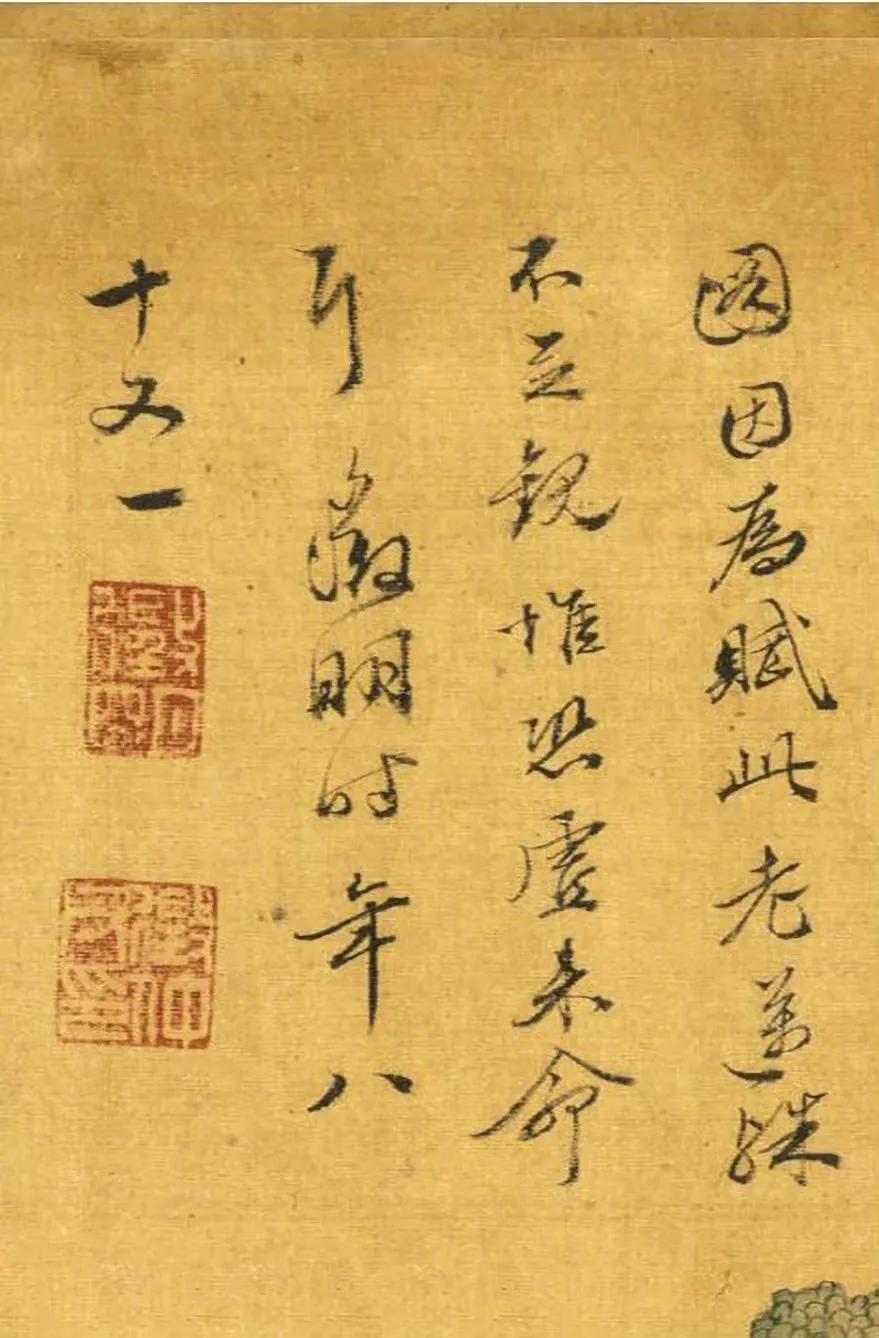 圖因為賦此老邁殊
不足觀惟恐虛來命
耳徵明時年八
十又一